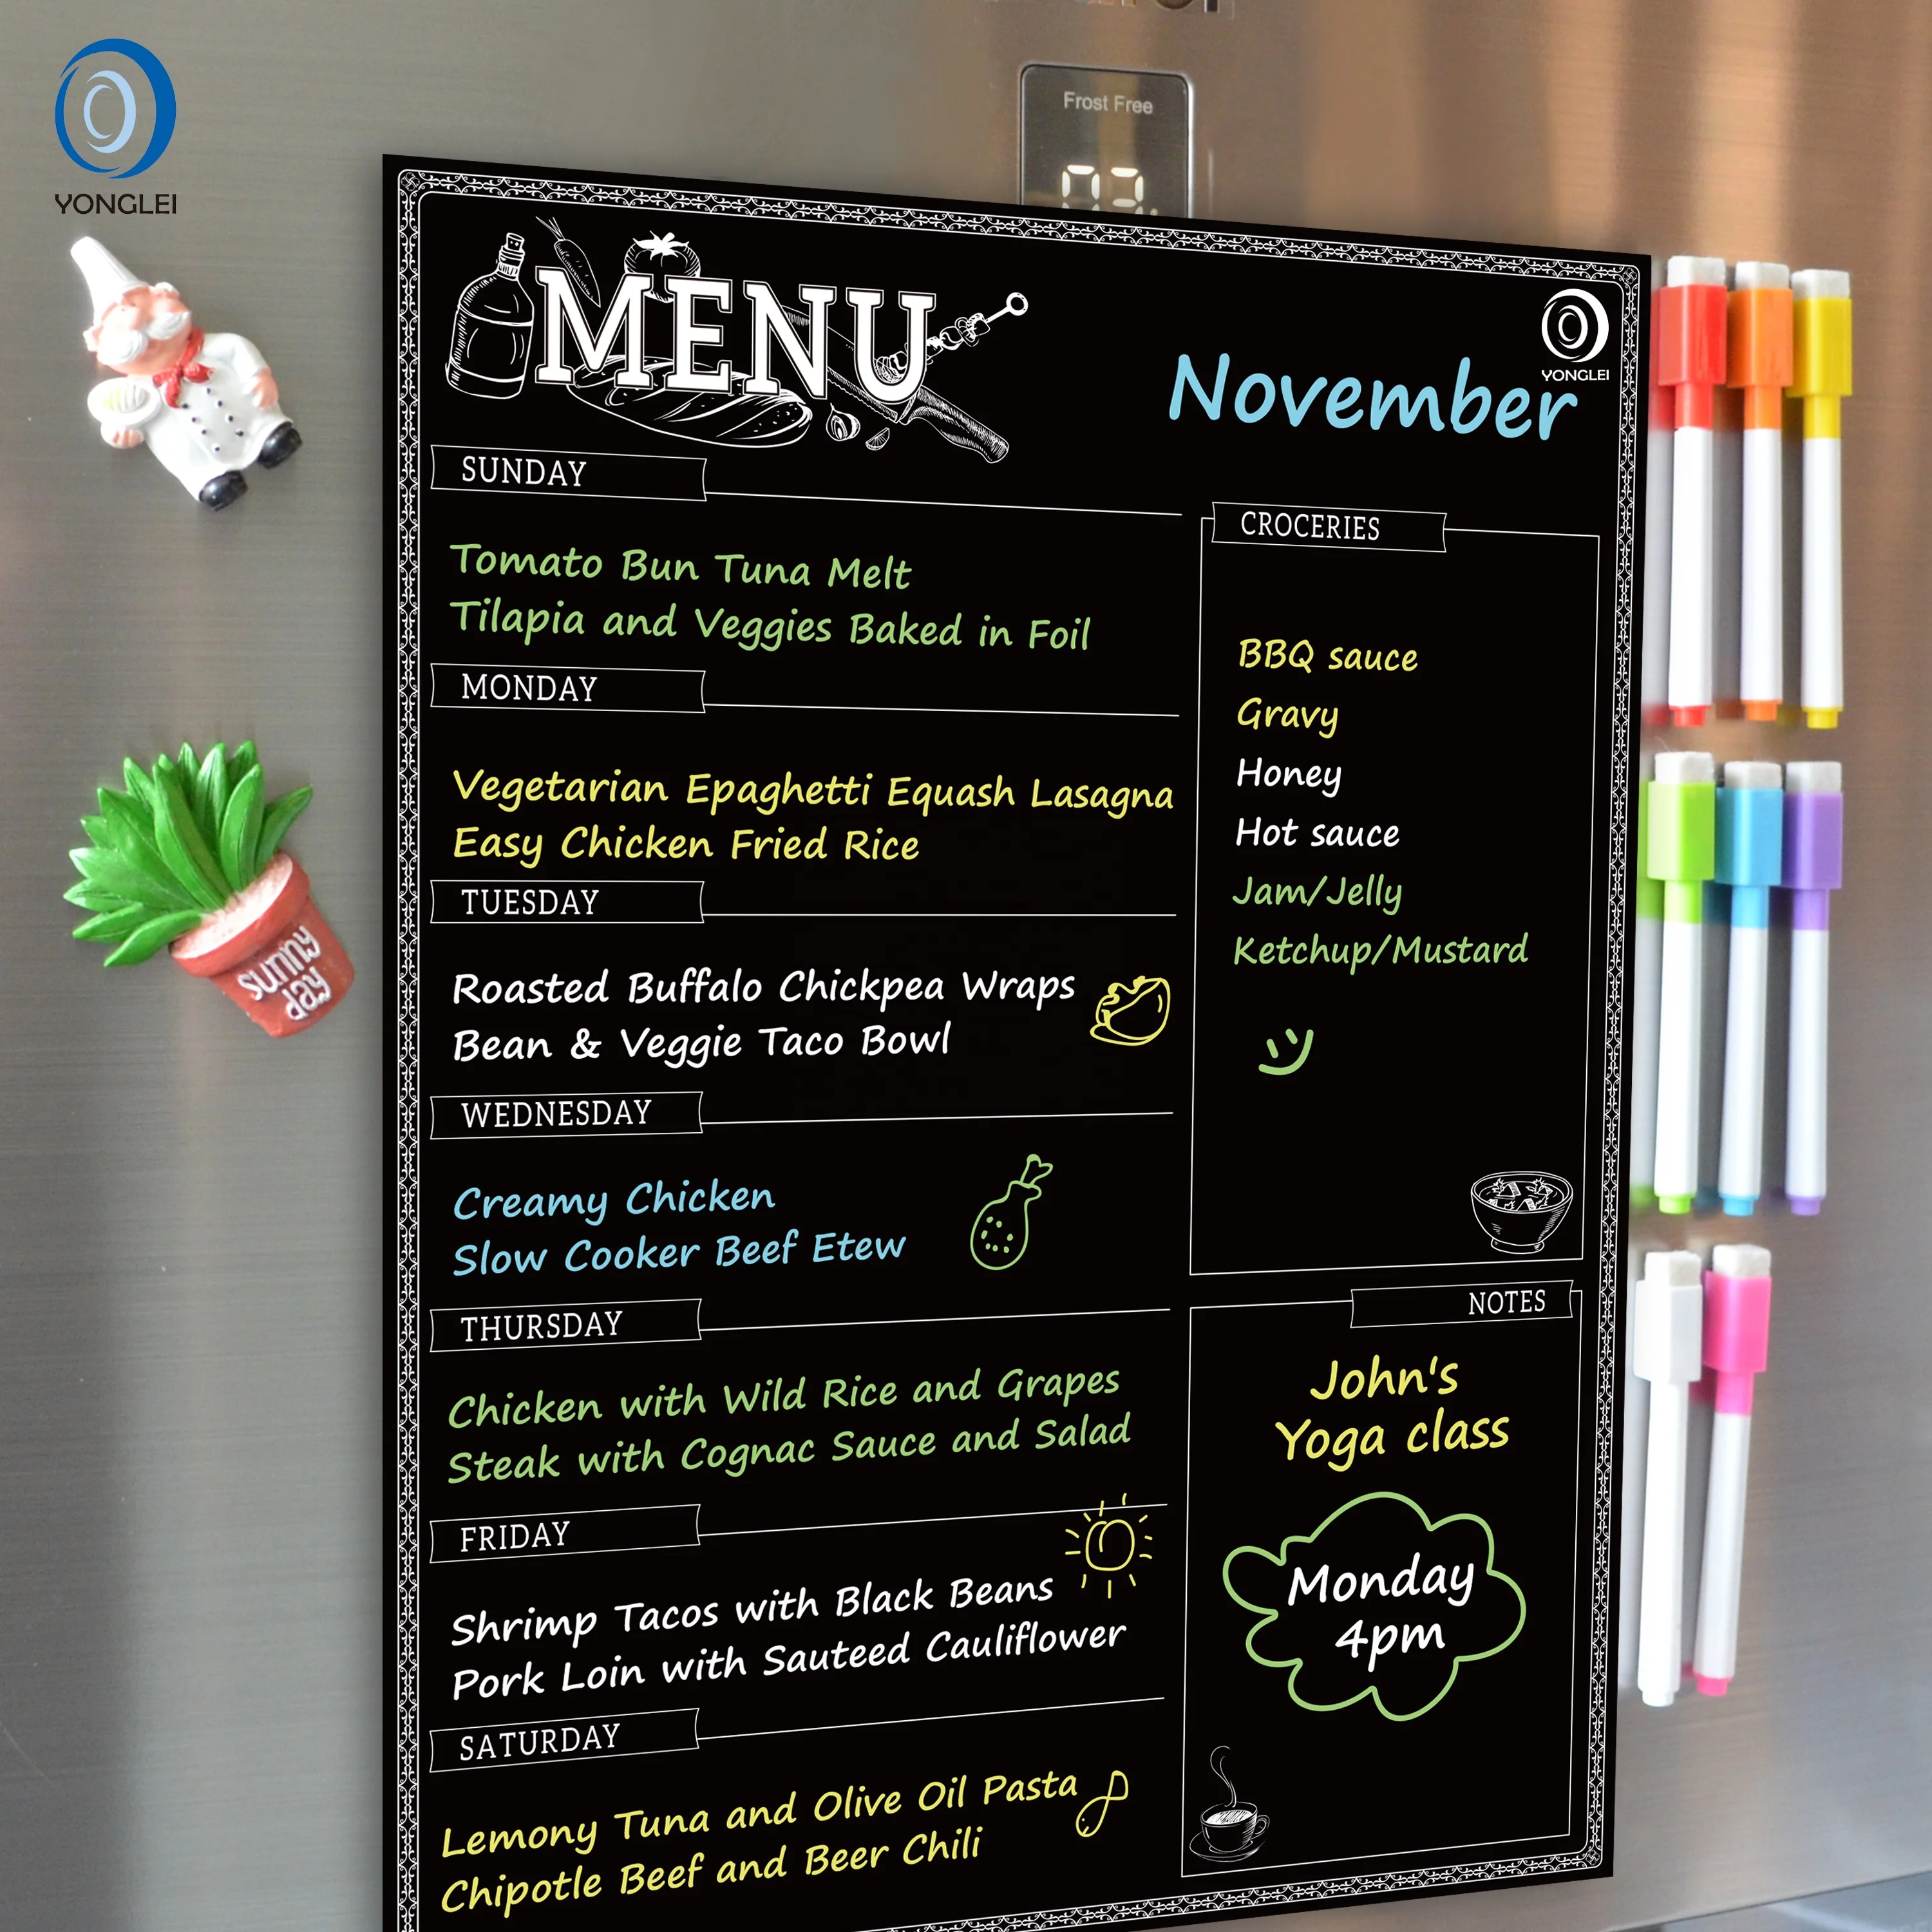 YONGLEI
Frost Free
03
MENU
YONGLEI
November
SUNDAY
Tomato Bun Tuna Melt
Tilapia and Veggies Baked in Foil
MONDAY
Vegetarian Epaghetti Equash Lasagna
Easy Chicken Fried Rice
TUESDAY
Roasted Buffalo Chickpea Wraps
Bean & Veggie Taco Bowl
WEDNESDAY
Creamy Chicken
Slow Cooker Beef Etew
THURSDAY
Chicken with Wild Rice and Grapes
Steak with Cognac Sauce and Salad
FRIDAY
Shrimp Tacos with Black Beans
Pork Loin with Sauteed Cauliflower
SATURDAY
Lemony Tuna and Olive Oil Pasta
Chipotle Beef and Beer Chili
CROCERIES
BBQ sauce
Gravy
Honey
Hot sauce
Jam/Jelly
Ketchup/Mustard
NOTES
John's
Yoga class
Monday
4pm
sunny
day